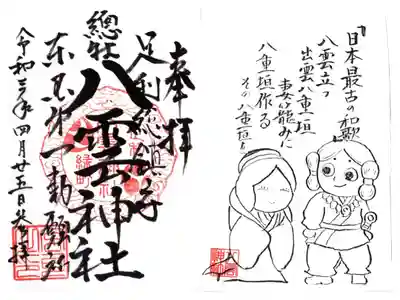 「日本最古の和歌
八雲立つ
出雲八重垣
妻籠みに
八重垣作る
その八重垣を
奉拝
足利總鎮守
總社 八雲神社
東国第一勅願所
令和三年四月廿五日参拝